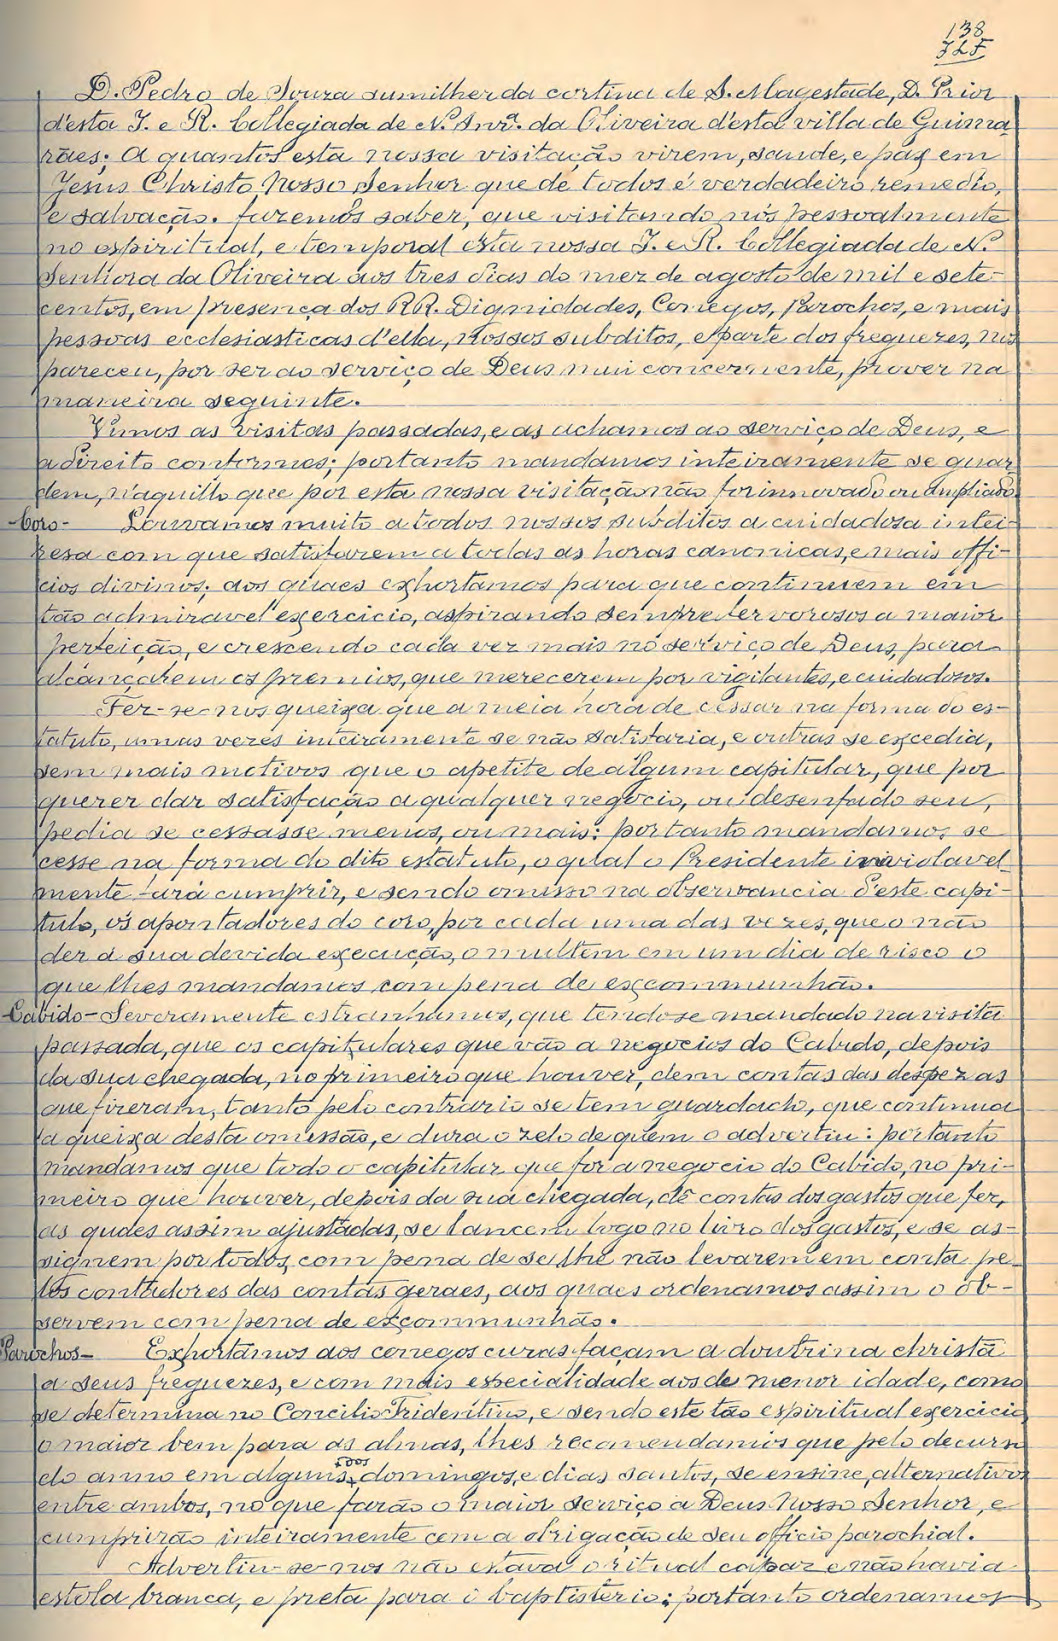 138
D. Pedro de Souza sumilher da cortina de S. Magestade, D. Prior
d'esta I. e R. Collegiada de N. Snrª. da Oliveira d'esta villa de Guima
rães; A quantos esta nossa visitação virem, saude, e paz em
Jesus Christo Nosso Senhor que de todos é verdadeiro remedio,
e salvação. fazemos saber, que visitando nós pessoalmente
no espiritual, e temporal esta nossa I. e R. Collegiada de N.
Senhora da Oliveira aos tres dias do mez de agosto de mil e sete-
centos, em presença dos RR. Dignidades, Conegos, Parochos, e mais
pessoas ecclesiasticas d'ella, nossos subditos, e parte dos freguezes, nos
pareceu, por ser ao serviço de Deus mui concernente, prover na
maneira seguinte.
Vimos as visitas passadas, e as achamos ao serviço de Deus, e
a direito conformes; portanto mandamos inteiramente se guar
dem, n'aquillo que por esta nossa visitação não for innovado ou ampliado
-Coro- Louvamos muito a todos nossos subditos a cuidadosa intei-
resa com que satisfazem a todas as horas canonicas, e mais offi-
cios divinos; aos quaes exhortamos para que continuem em
tão admiravel exercicio, aspirando sempre fervorosos a maior
perfeição, e crescendo cada vez mais no serviço de Deus, para
alcançarem os premios, que merecerem por vigilantes, e cuidadosos.
Fez-se-nos queixa que a meia hora de cessar na forma do es-
tatuto, umas vezes inteiramente se não satisfazia, e outras se excedia,
sem mais motivos que o apetite de algum capitular, que por
querer dar satisfação a qualquer negocio, ou desenfado seu,
pedia se cessasse menos, ou mais: portanto mandamos se
cesse na forma do dito estatuto, o qual o Presidente inviolavel-
mente fará cumprir, e sendo omisso na observancia d'este capi-
tulo, os apontadores do coro, por cada uma das vezes, que o não
der á sua devida execução, o multem em um dia de risco o
que lhes mandamos com pena de excommunhão.
-Cabido- Severamente estranhamos, que tendo-se mandado na visita
passada, que os capitulares que vão a negocios do Cabido, depois
da sua chegada, no primeiro que houver, dem contas das despezas
que fizeram, tanto pelo contrario se tem guardado, que continua
a queixa desta omissão, e dura o zelo de quem o advertiu: portanto
mandamos que todo o capitular que for a negocio do Cabido, no pri-
meiro que houver, depois da sua chegada, dê contas dos gastos que fez,
as quaes assim ajustadas, se lancem logo no livro dos gastos, e se as-
signem por todos, com pena de se lhe não levarem em conta pe-
los contadores das contas geraes, aos quaes ordenamos assim o ob-
servem com pena de excommunhão.
Parochos- Exhortamos aos conegos curas façam a doutrina christã
a seus freguezes, e com mais especialidade aos de menor idade, como
se determina no Concilio Tridentino, e sendo este tão espiritual exercicio
o maior bem para as almas, lhes recomendamos que pelo decurso
do anno em alguns dos domingos, e dias santos, se ensine, alternativos
entre ambos, no que farão o maior serviço a Deus Nosso Senhor, e
cumprirão inteiramente com a obrigação de seu officio parochial.
Advertiu-se-nos não estava o ritual capaz e não havia
estola branca, e preta para o baptisterio; portanto ordenamos